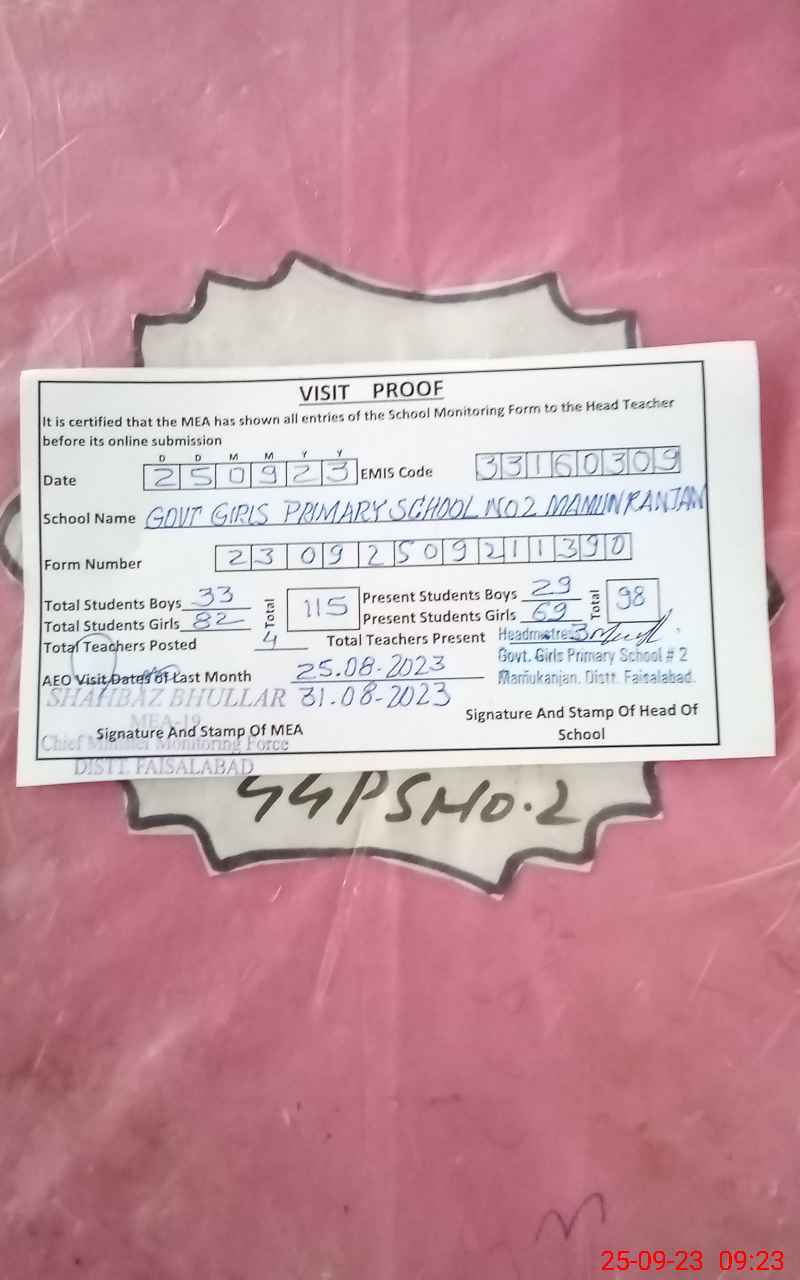 VISIT PROOF
It is certified that the MEA has shown all entries of the School Monitoring Form to the Head Teacher
before its online submission
D D M M Y Y
Date 250923 EMIS Code 33160309
School Name GOVT GIRLS PRIMARY SCHOOL NO2 MAMUNKANJAN
Form Number 23092509211390
Total Students Boys 33 Total 115 Present Students Boys 29 Total 98
Total Students Girls 82 Present Students Girls 69
Total Teachers Posted 4 Total Teachers Present 3
Headmistress
Govt. Girls Primary School # 2
Mamukanjan. Distt. Faisalabad.
AEO Visit Dates of Last Month 25.08.2023
31.08-2023
SHAHBAZ BHULLAR
MEA-19
Chief Minister Monitoring Force
DISTT. FAISALABAD
Signature And Stamp Of MEA
Signature And Stamp Of Head Of
School
GGPSNO.2
25-09-23 09:23